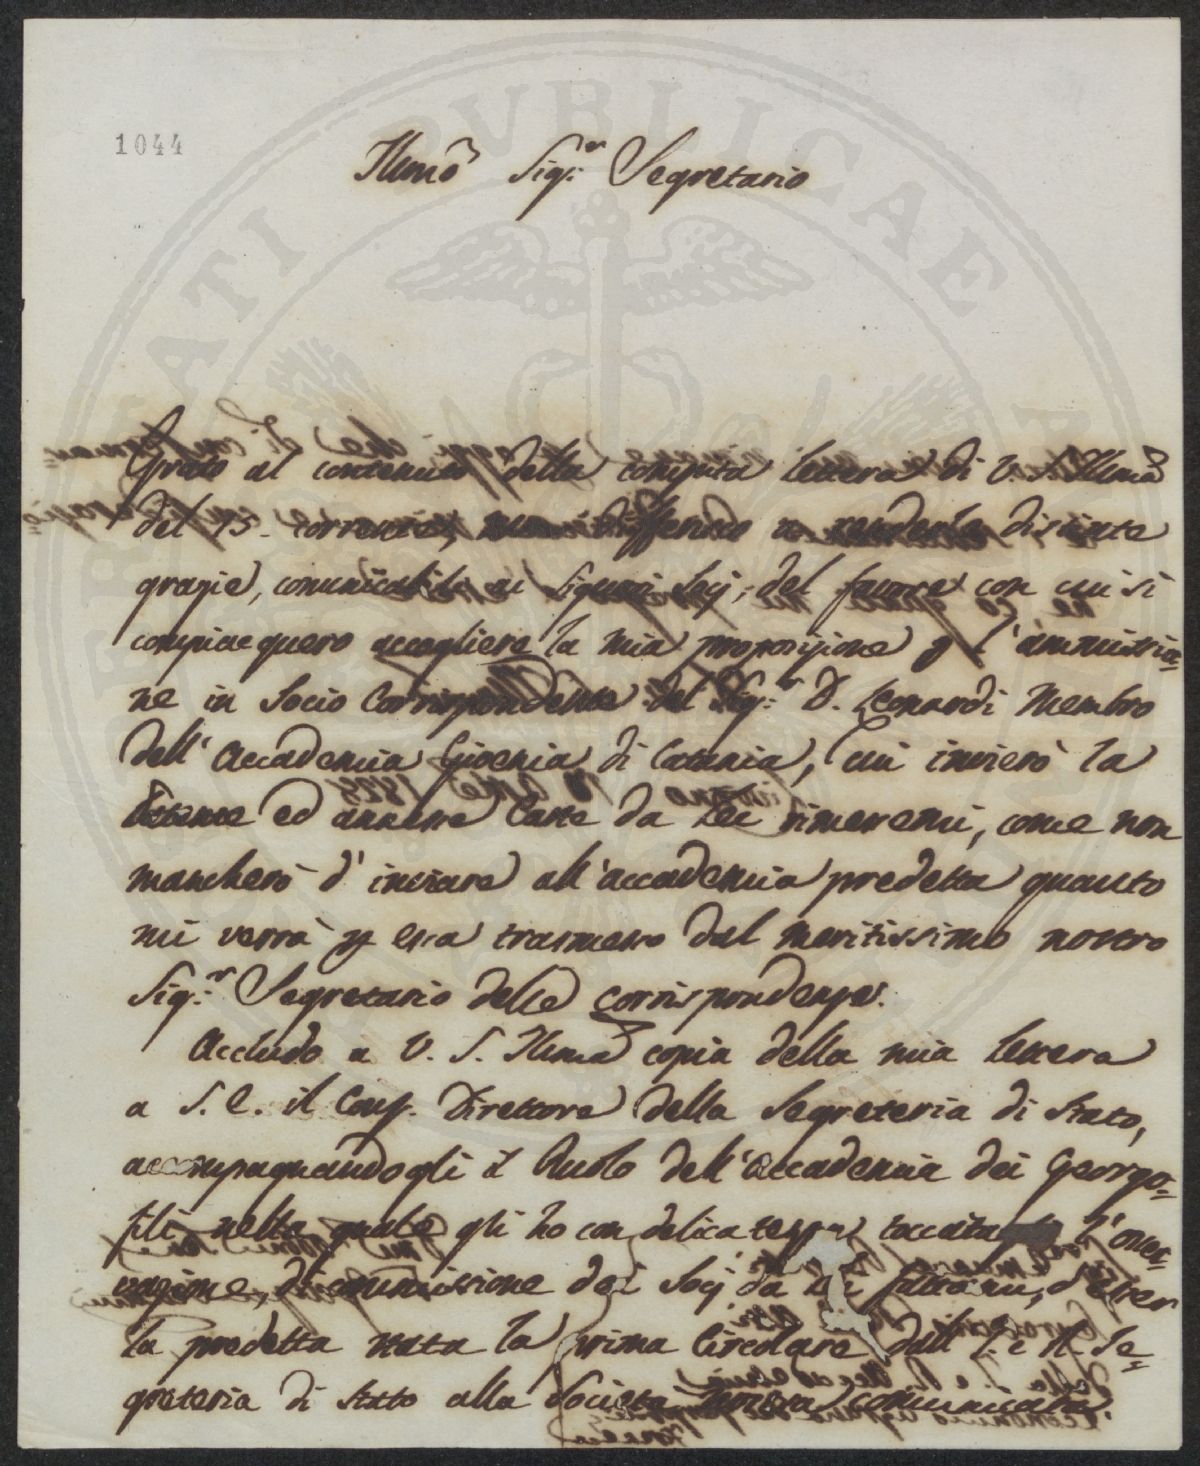 1044
Illmo Sig:r Segretario
Grato al contenuto della compita lettera di V. S. Illma
del 15. corrente, non differisco a renderle distinte
grazie, comunicabili ai Signori Socj, del favore con cui si
compiacquero accogliere la mia proposizione p l'ammissio=
ne in Socio Corrispondente del Sig:r D. Leonardi Membro
dell'Accademia Gioenia di Catania, cui invierò la
lettera ed annesse Carte da Lei rimessemi, come non
mancherò d'inviare all'accademia predetta quanto
mi verrà p essa trasmesso dal meritissimo nostro
Sig:r Segretario delle corrispondenze.
Accludo a V. S. Illma copia della mia lettera
a S. E. il Conf. Direttore della Segreteria di Stato,
accompagnandogli il Ruolo dell'Accademia dei Georgo=
fili nella quale gli ho con delicatezza toccata l'osser=
vazione, di ommissione dei Socj da Lei fattami, d'esser
la predetta stata la prima Circolare dall'I. e R. Se=
greteria di Stato alla Società nostra comunicata.